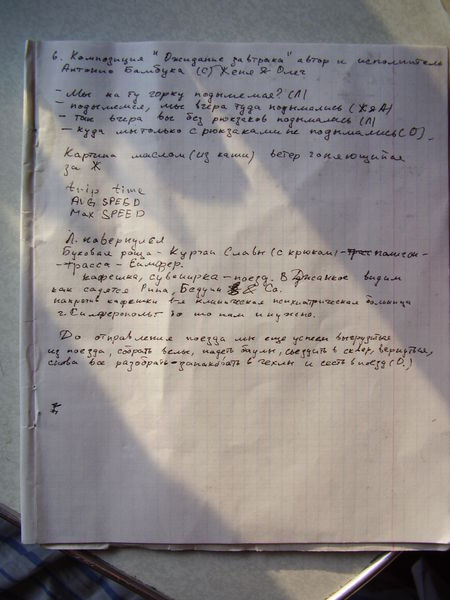 6. Композиция "Ожидание завтрака" автор и исполнитель
Антонио Бамбука (С) Женя & Олег
- Мы на ту горку подымемая? (Л)
- подымемся, мы вчера туда подымались (Ж&А)
- так вчера вы без рюкзаков подымались (Л)
- куда мы только с рюкзаками не подымались (О).
Картина маслом (из каши) ветер гоняющийся
за Ж
trip time
AVG SPEED
MAX SPEED
Л. навернулся
Буковая роща - Курган Славы (с крюком) -
- трасса - Симфер.
кафешка, сувенирка - поезд. В Джанкое видим
как садятся Рина, Бедуин & Co.
напротив кафешки 1-я клиническая психиатрическая больница
г. Симферополь то то нам и нужно.
До отправления поезда мы еще успеем выгрузиться
из поезда, собрать велы, надеть баулы, съездить в сквер, вернуться,
снова все разобрать запаковать в чехлы и сесть в поезд (О.)